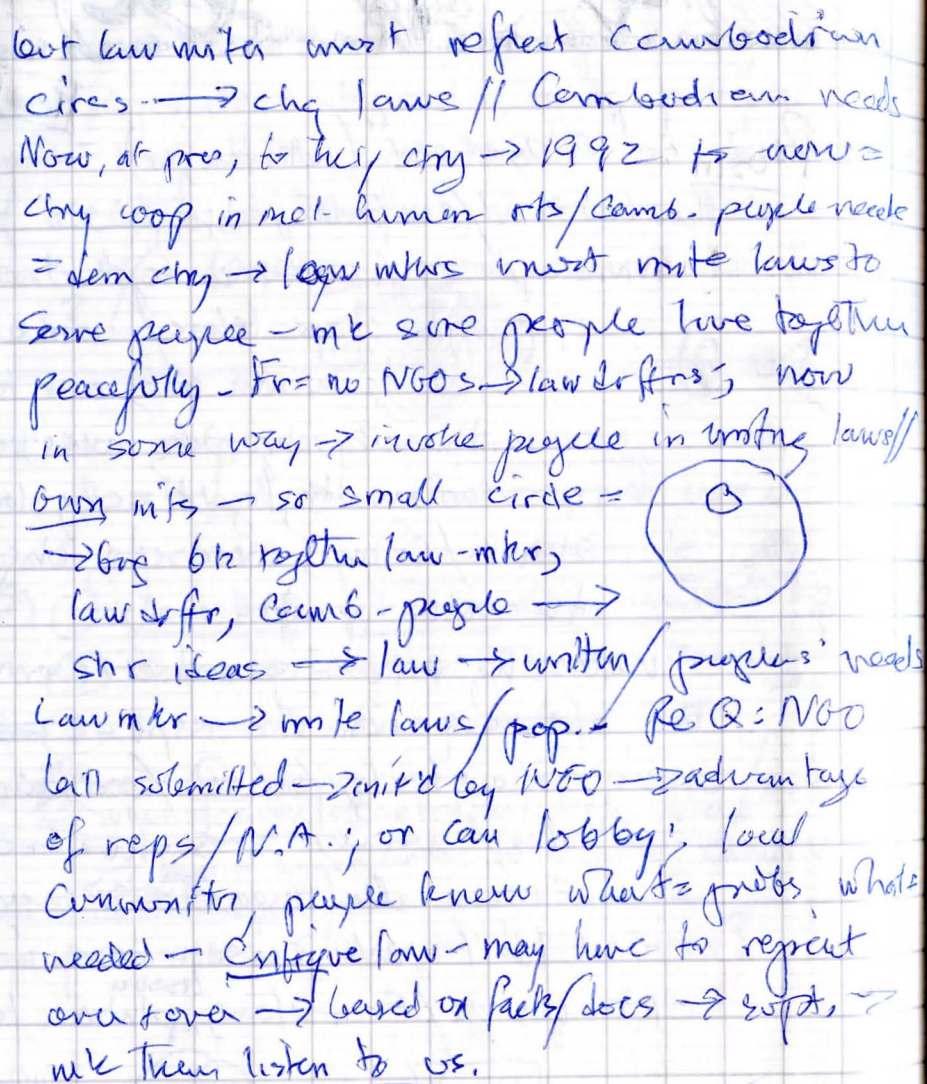 but law mkrs must reflect Cambodian
circs. → chg laws // Cambodian needs
Now, at pres, to help chg → 1992 to now =
chg coop in human rts/Camb. people needs
= dem chg → law mkrs must write laws to
serve people - mk sure people live together
peacefully - Fr = no NGOs → law drftrs; now
in some way → invoke people in writing laws //
own - so small circle =
→ big btr together law-mkr,
law drftr, Camb-people →
shr ideas → law → written/peoples' needs
Law mkr → write laws/pop. - Re Q: NGO
bill submitted → init'd by NGO → advantage
of reps/N.A.; or can lobby; local
people know what = probs what =
needed - Critique law - may have to repeat
over + over → based on facts/docs → supt, →
mk them listen to us.